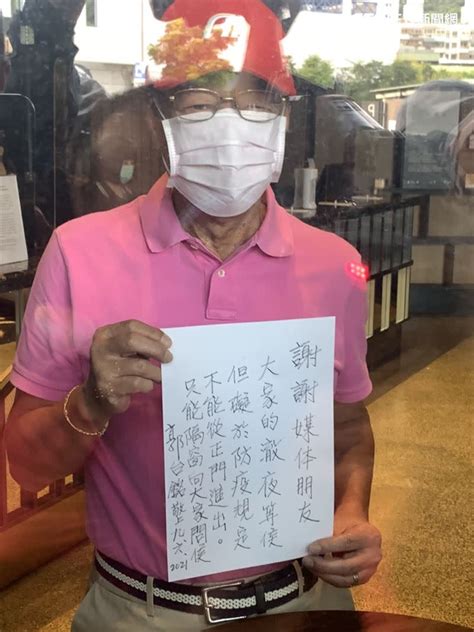 謝謝媒体朋友
大家的澈夜等侯
但礙於防疫規定
不能從正門進出。
只能隔窗向大家問侯
郭台銘敬九.六. 2021
新聞網